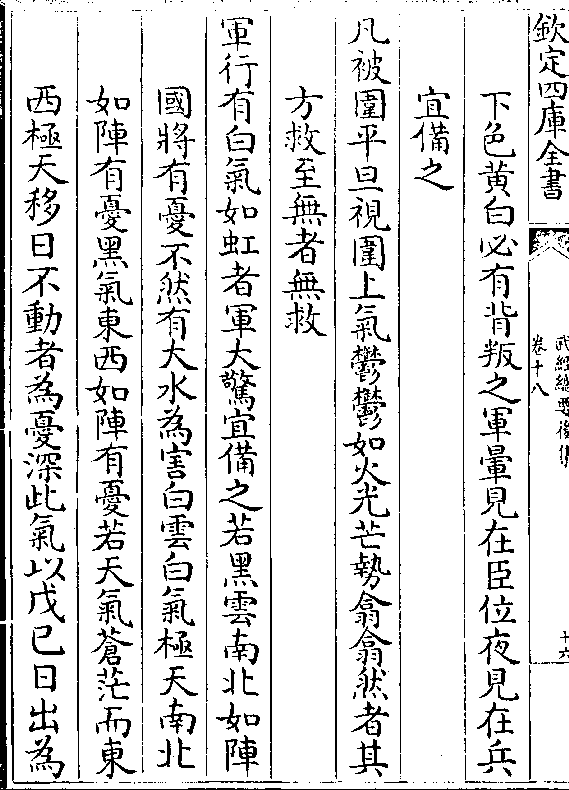 欽定四庫全書
武經總要後集
卷十八
十六
下色黄白必有背叛之軍暈見在臣位夜見在兵
宜備之
凡被圍平旦視圍上氣鬱鬱如火光芒勢翕翕然者其
方救至無者無救
軍行有白氣如虹者軍大驚宜備之若黑雲南北如陣
國將有憂不然有大水為害白雲白氣極天南北
如陣有憂黑氣東西如陣有憂若天氣蒼茫而東
西極天移日不動者為憂深此氣以戊己日出為